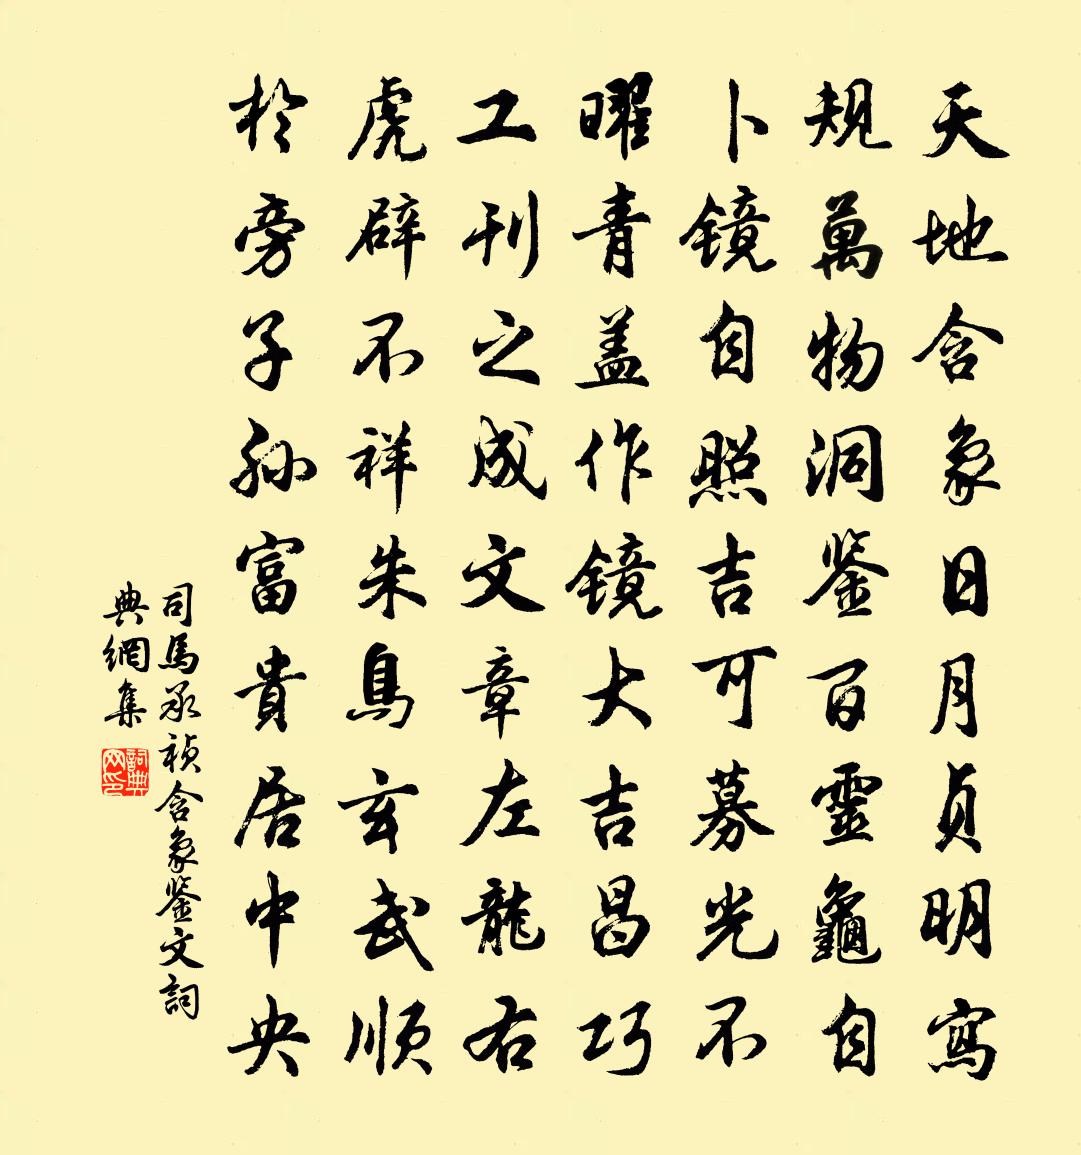 天地含象日月貞明寫
規萬物洞鉴百靈龜自
卜镜自照吉可募光不
曜青盖作镜大吉昌巧
工刊之成文章左龍右
虎辟不祥朱鳥玄武顺
於旁子孙富貴居中央
司馬承祯含象鉴文詞
典網集
詞典网印